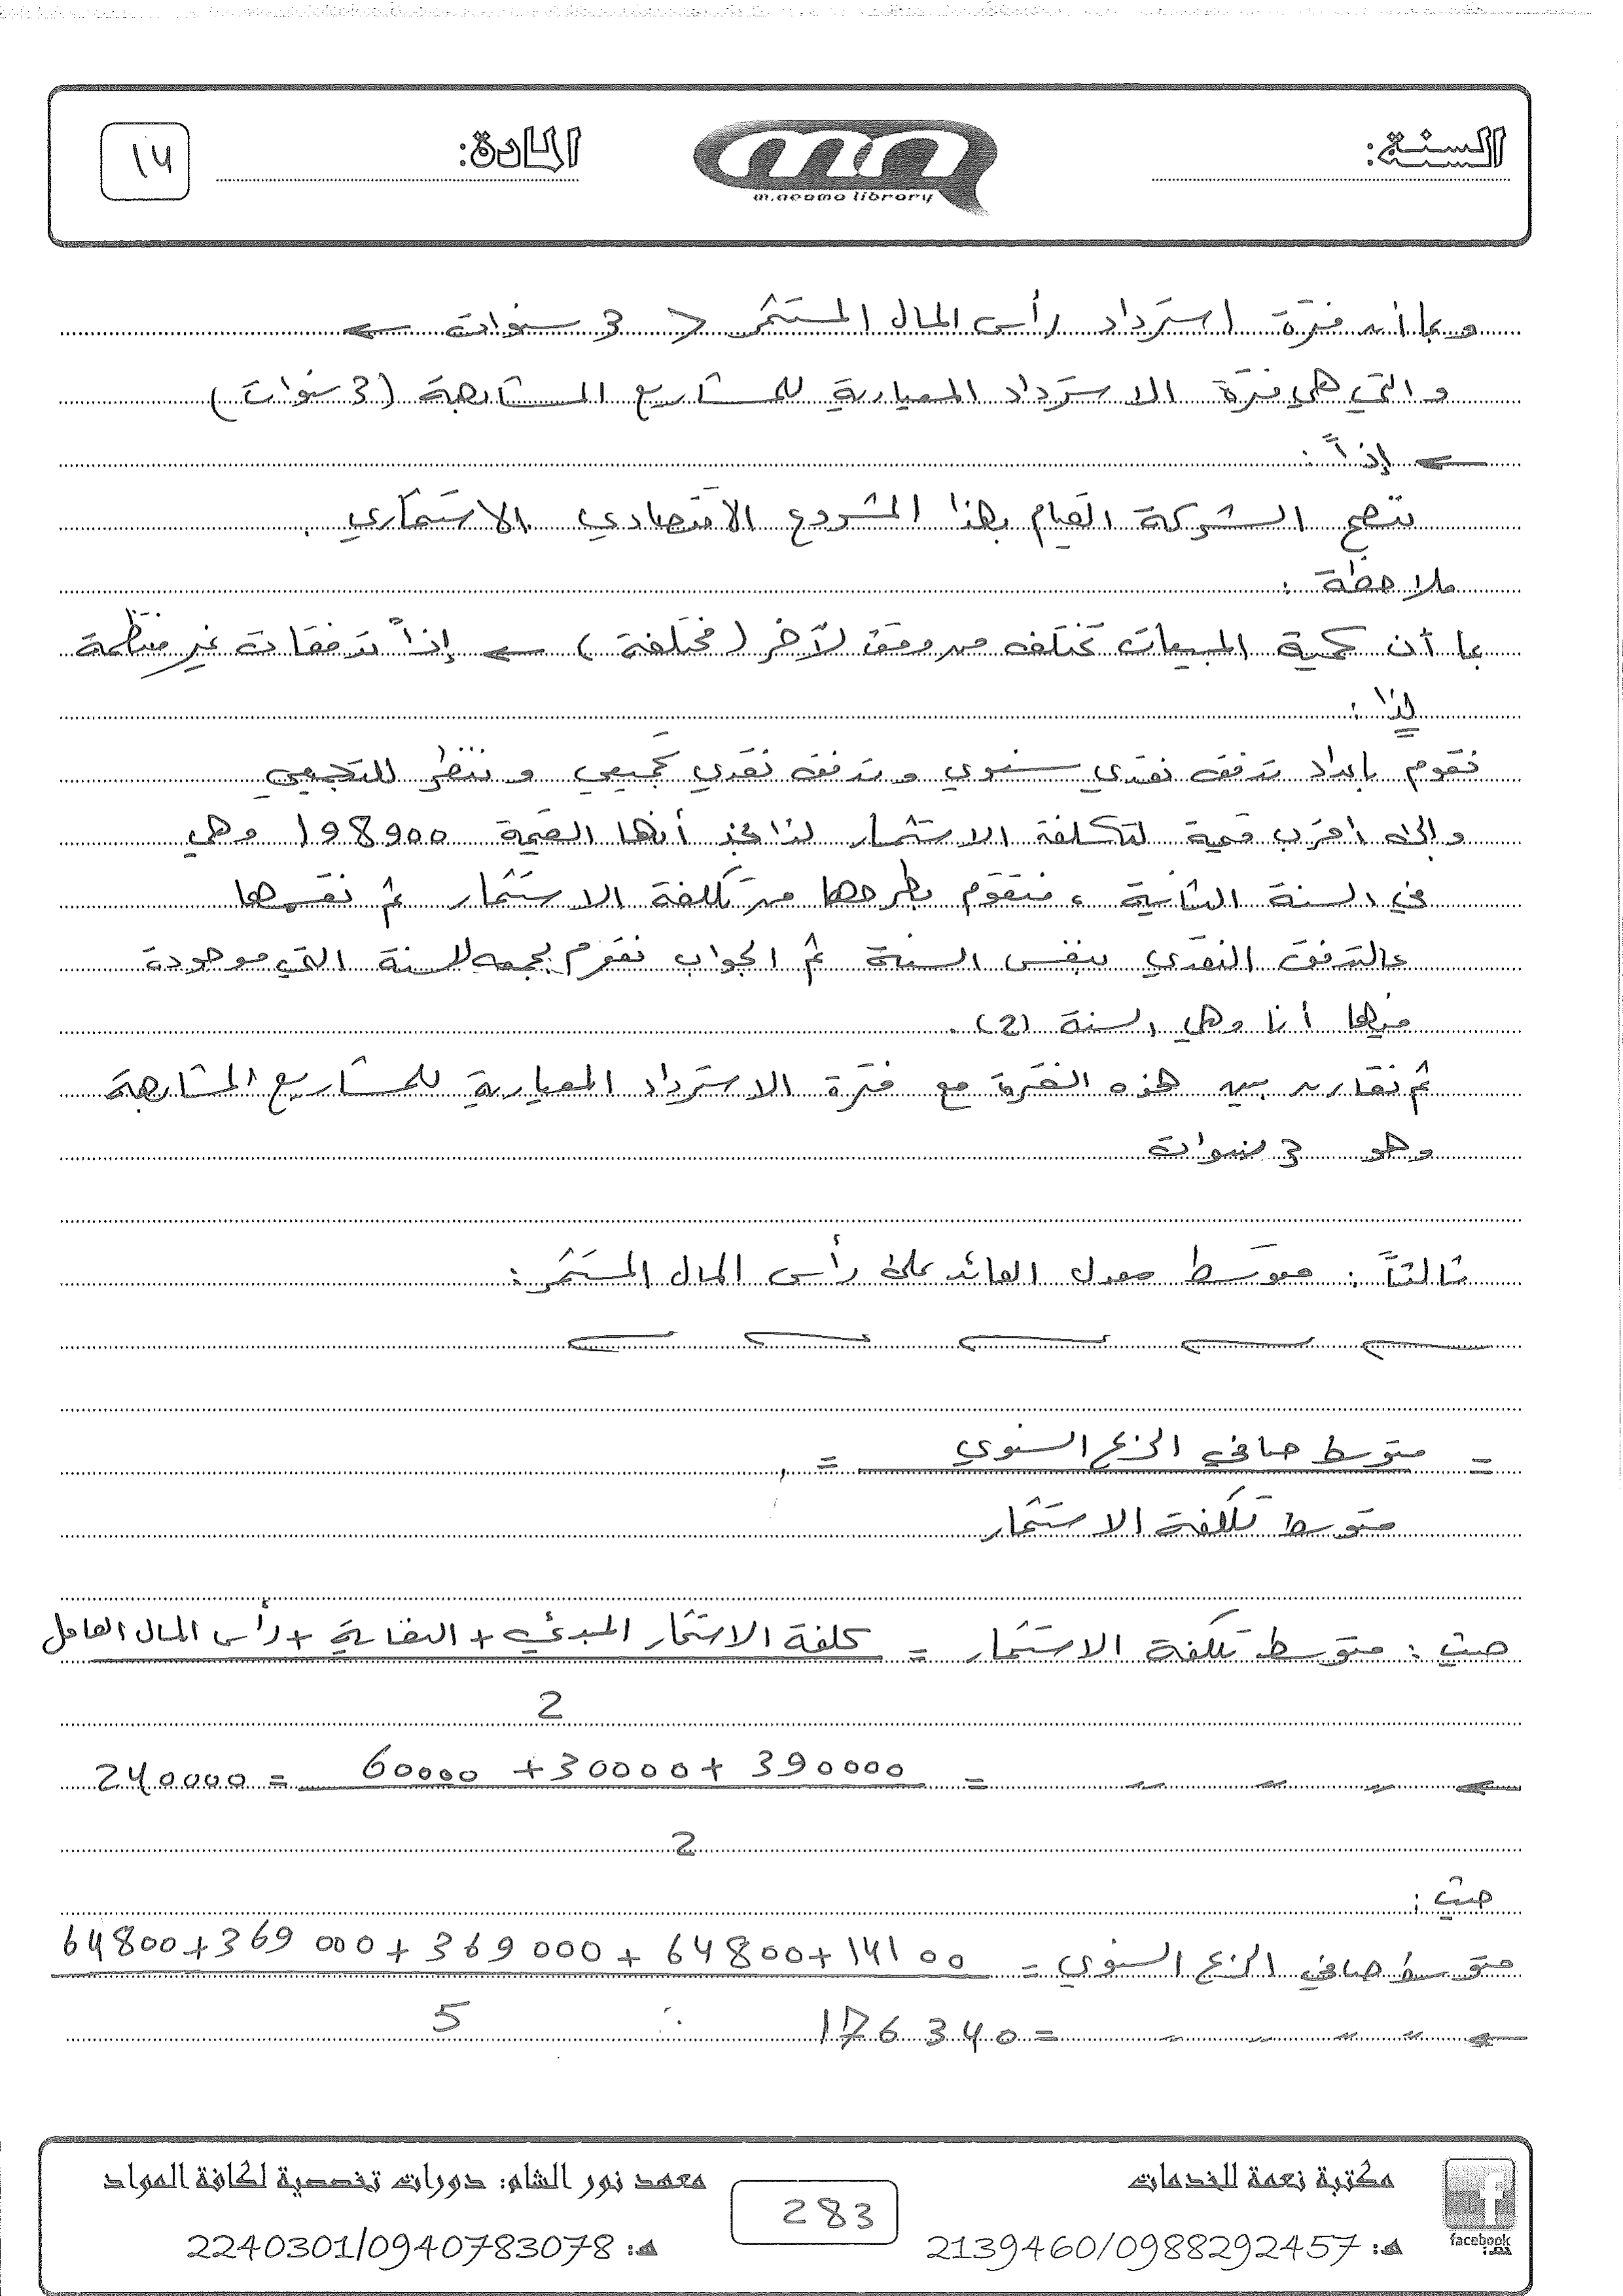 السنة:
المادة:
14
m.neama library
وبما أن فترة استرداد رأس المال المستثمر < 3 سنوات ←
والتي هي فترة الاسترداد المعيارية للمشاريع المشابهة (3 سنوات)
← إذاً :
ننصح الشركة القيام بهذا المشروع الاقتصادي الاستثماري .
ملاحظة :
بما أن كمية المبيعات تختلف من وقت لآخر (مختلفة) ← إذاً تدفقات غير منتظمة
لذا :
نقوم بإعداد تدفق نقدي سنوي وتدفق نقدي تجميعي وننظر للتجميعي
وإلى أقرب قيمة لتكلفة الاستثمار لذا نجد أنها القيمة 198900 وهي
في السنة الثانية ، فنقوم بطرحها من تكلفة الاستثمار ثم نقسمها
عالتدفق النقدي بنفس السنة ثم الجواب نقوم بجمعه لسنة التي موجودة
فيها أنا وهي السنة (2) .
ثم نقارن بين هذه الفترة مع فترة الاسترداد المعيارية للمشاريع المشابهة
وهو 3 سنوات
ثالثاً : متوسط معدل العائد على رأس المال المستثمر :
= متوسط صافي الربح السنوي =
متوسط تكلفة الاستثمار
حيث : متوسط تكلفة الاستثمار = كلفة الاستثمار المبدئي + النفاية + رأس المال العامل
2
← " " " = 60000 + 30000 + 390000 = 240000
2
حيث :
متوسط صافي الربح السنوي = 64800 + 369000 + 369000 + 64800 + 14100
5
← " " " " = 176340
مكتبة نعمة للخدمات
هـ: 2139460/0988292457
283
معهد نور الشام: دورات تخصصية لكافة المواد
هـ: 2240301/0940783078
facebook